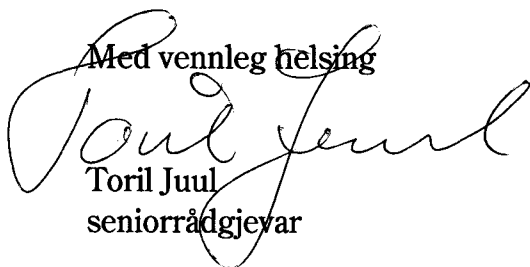 Med vennleg helsing
Toril Juul
Toril Juul
seniorrådgjevar